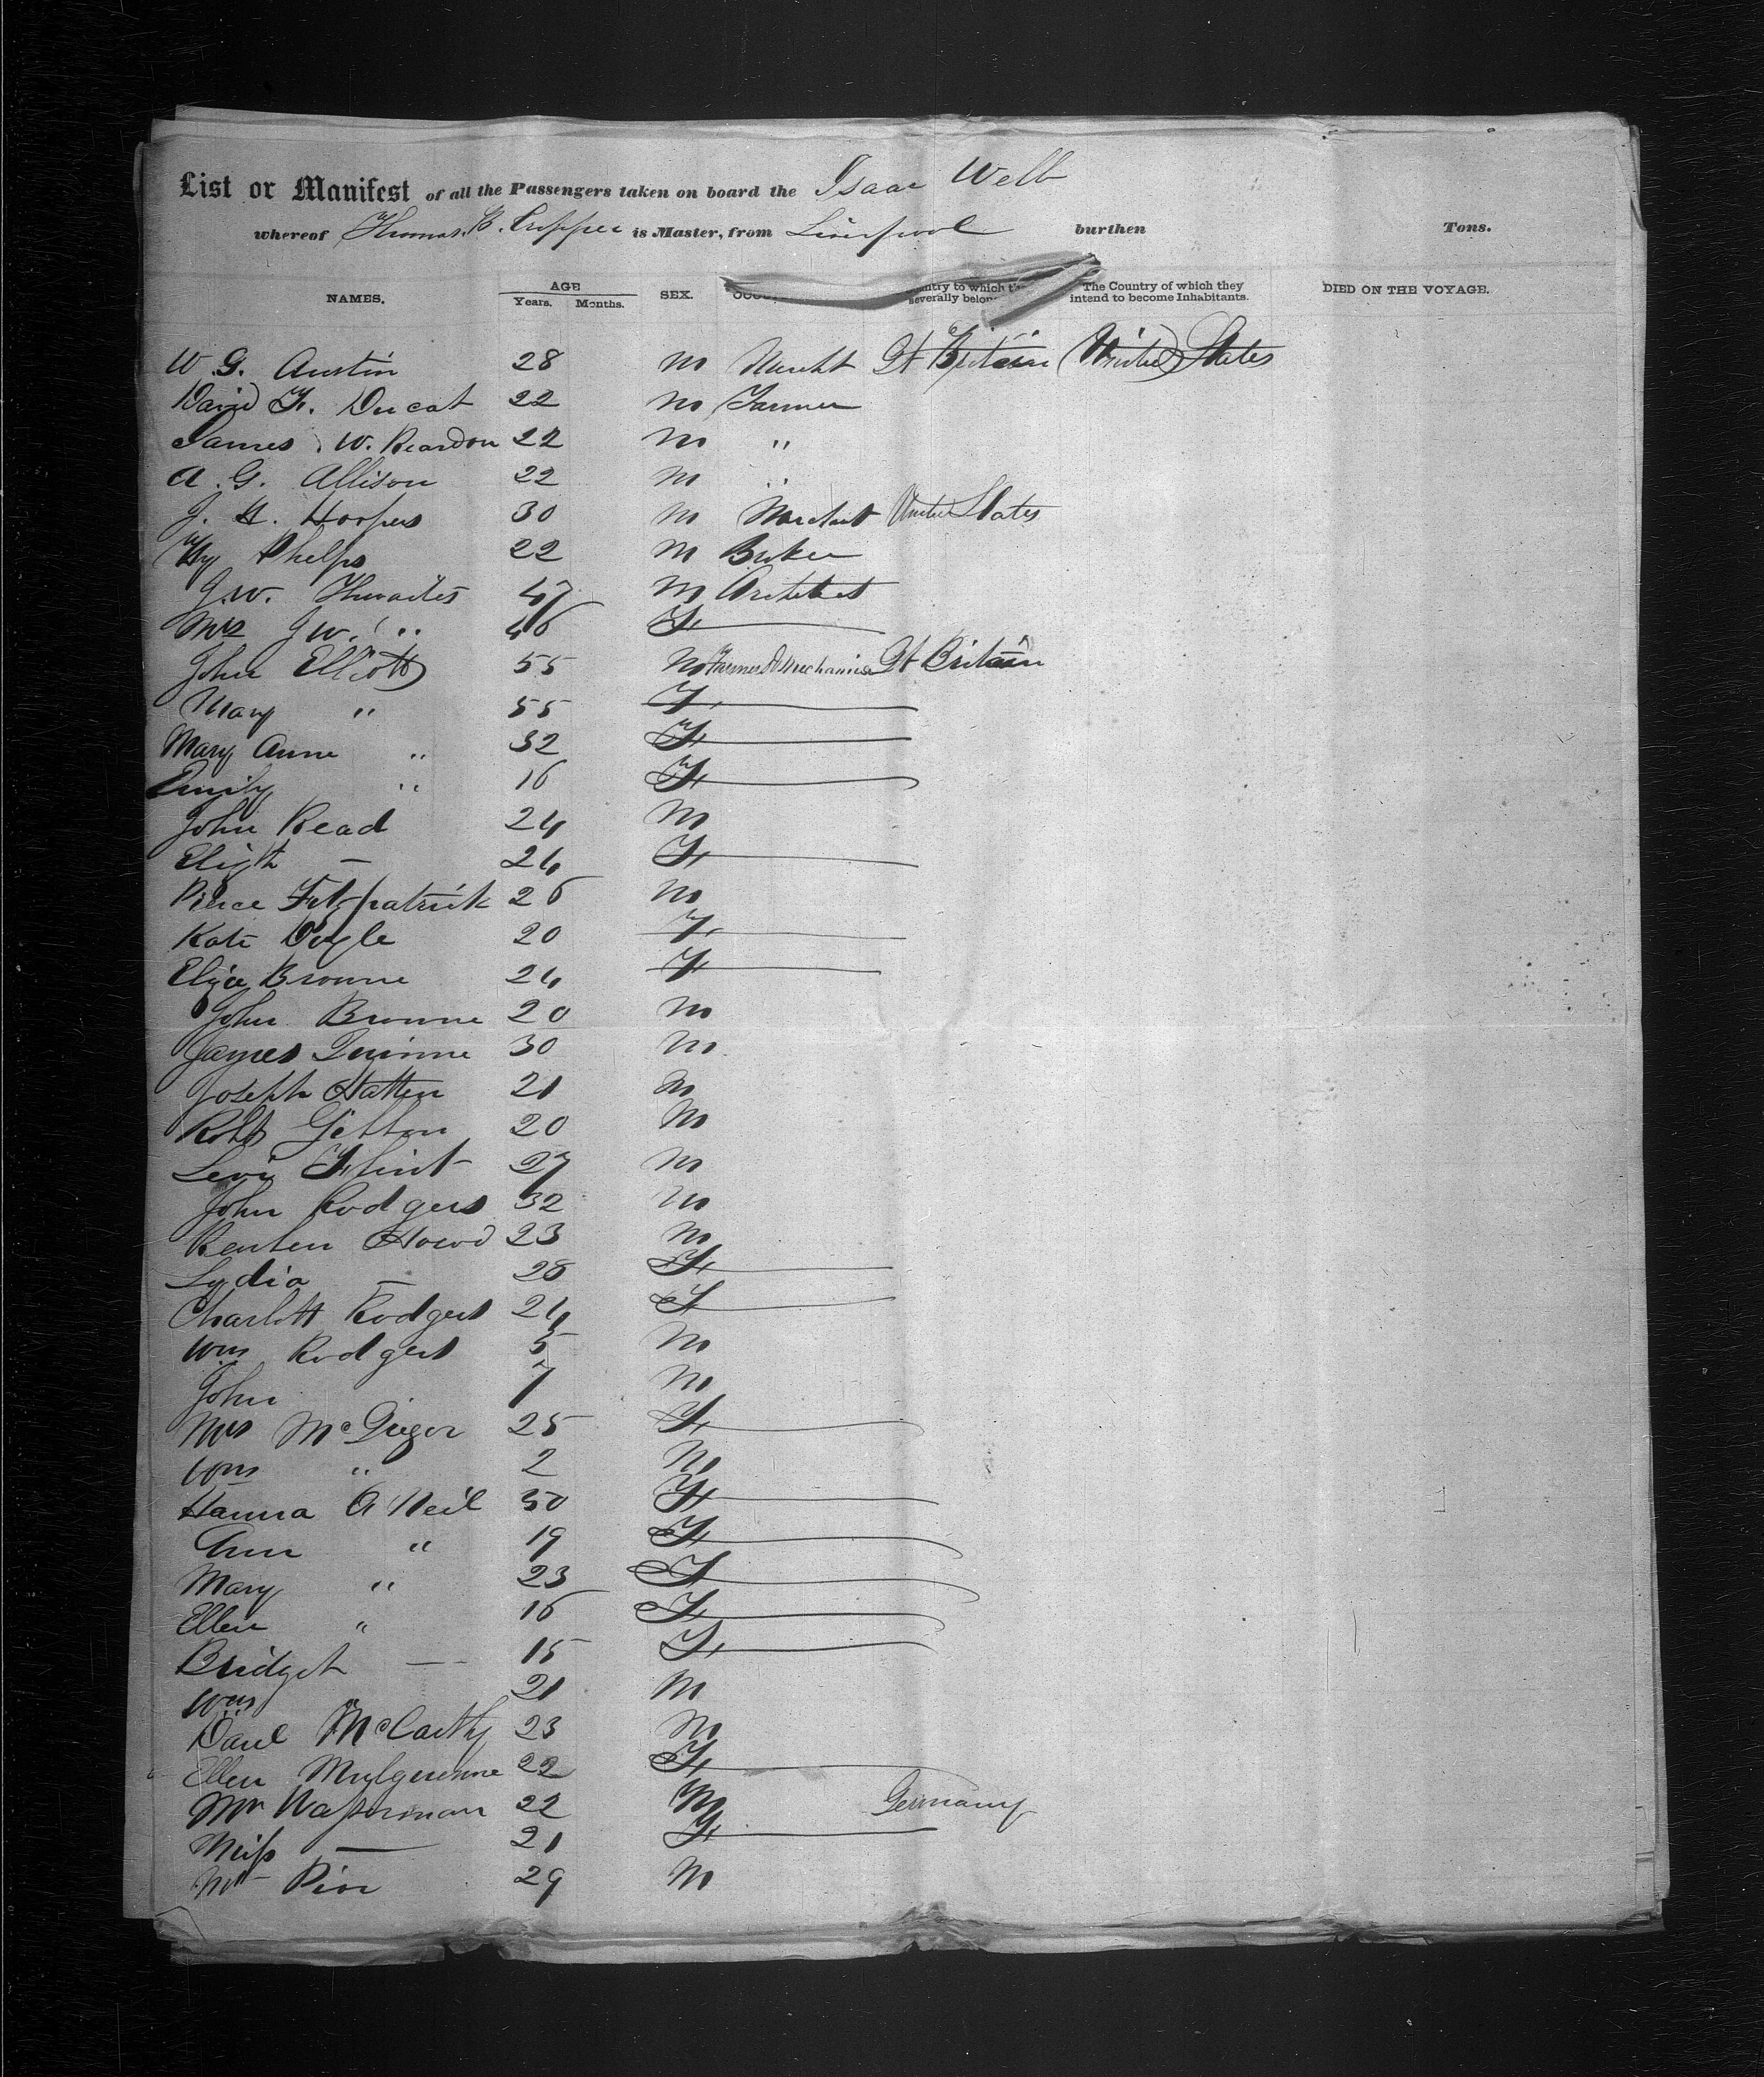 List or Manifest of all the Passengers taken on board the Isaac Webb
whereof Thomas B. Cropper is Master, from Liverpool burthen Tons.
NAMES. AGE Years. Months. SEX. The Country of which they intend to become Inhabitants. DIED ON THE VOYAGE.
W G. Austin 28 M Mercht Gt Britain United States
David F. Ducat 22 M Farmer
James W. Reardon 22 M "
A. G. Allison 22 M "
J. H. Hoopes 30 M Merchant United States
Hy Phelps 22 M Broker
J.W. Thwaites 47 M Architect
Mrs J W. " 46 F
John Elliott 55 M Farmer & Mechanics Gt Britain
Mary " 55 F
Mary Anne " 32 F
Emily " 16 F
John Read 24 M
Elizth — 24 F
Pierce Fitzpatrick 26 M
Kate Doyle 20 F
Eliza Browne 24 F
John Browne 20 M
James Quinne 30 M
Joseph Hatten 21 M
Robt 20 M
Levi Flint 27 M
John Rodgers 32 M
Reuben 23 M
Lydia — 28 F
Charlott Rodgers 24 F
Wm Rodgers 5 M
John 7 M
Mrs McGregor 25 F
Wm " 2 M
Hanna O Neil 50 F
Ann " 19 F
Mary " 23 F
Ellen " 16 F
Bridget — 15 F
Wm 21 M
Danl McCarthy 23 M
Ellen 22 F
Mr Wasserman 22 M Germany
Miss — 21 F
Mr 29 M